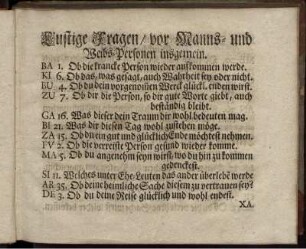 Lustige Fragen/ vor Manns- und
Weibs-Personen insgemein.
BA 1. Ob die krancke Person wieder aufkommen werde.
KI 6. Ob das, was gesagt, auch Wahrheit sey oder nicht.
BU 4. Ob du dein vorgenom̄en Werck glückl. enden wirst.
ZU 7. Ob dir die Person, so dir gute Worte giebt, auch
beständig bleibt.
GA 16. Was dieser dein Traum dir wohl bedeuten mag.
BI 21. Was dir diesen Tag wohl zustehen möge.
ZA 15. Ob du ein gut und glücklich Ende möchtest nehmen.
FV 2. Ob die verreiste Person gesund wieder komme.
MA 5. Ob du angenehm seyn wirst, wo du hin zu kommen
gedenckest.
SI 11. Welches unter Ehe-Leuten das ander überlebē werde
AR 35. Ob deine heimliche Sache diesem zu vertrauen sey?
DE 3. Ob du deine Reise glücklich und wohl endest.
XA.